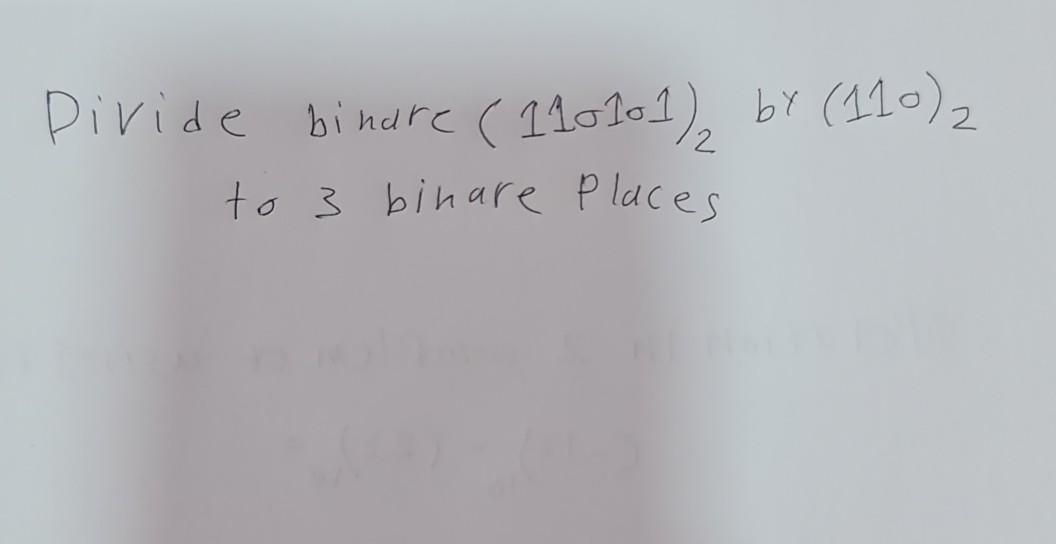 Divide binare (110101)₂ by (110)₂
to 3 binare Places